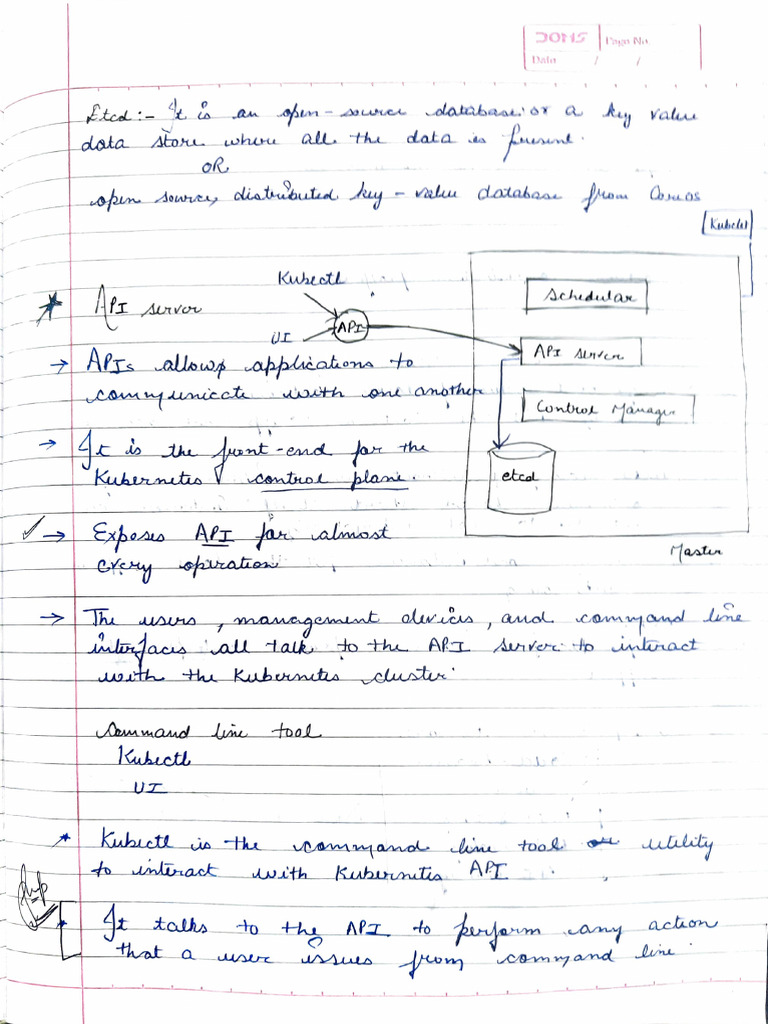 DOMS
Page No.
Date / /
Etcd :- It is an open-source database or a key value
data store where all the data is present.
OR
open source, distributed key-value database from Coreos
Kubelet
Kubectl
Schedular
* API server
API
UI
API server
→ APIs allows applications to
communicate with one another
Control Manager
→ It is the front-end for the
Kubernetes control plane.
etcd
✓ → Exposes API for almost
every operation
Master
→ The users, management devices, and command line
interfaces all talk to the API server to interact
with the Kubernetes cluster.
Command line tool
Kubectl
UI
* Kubectl is the command line tool or utility
to interact with Kubernetes API
Imp
* It talks to the API to perform any action
that a user issues from command line.